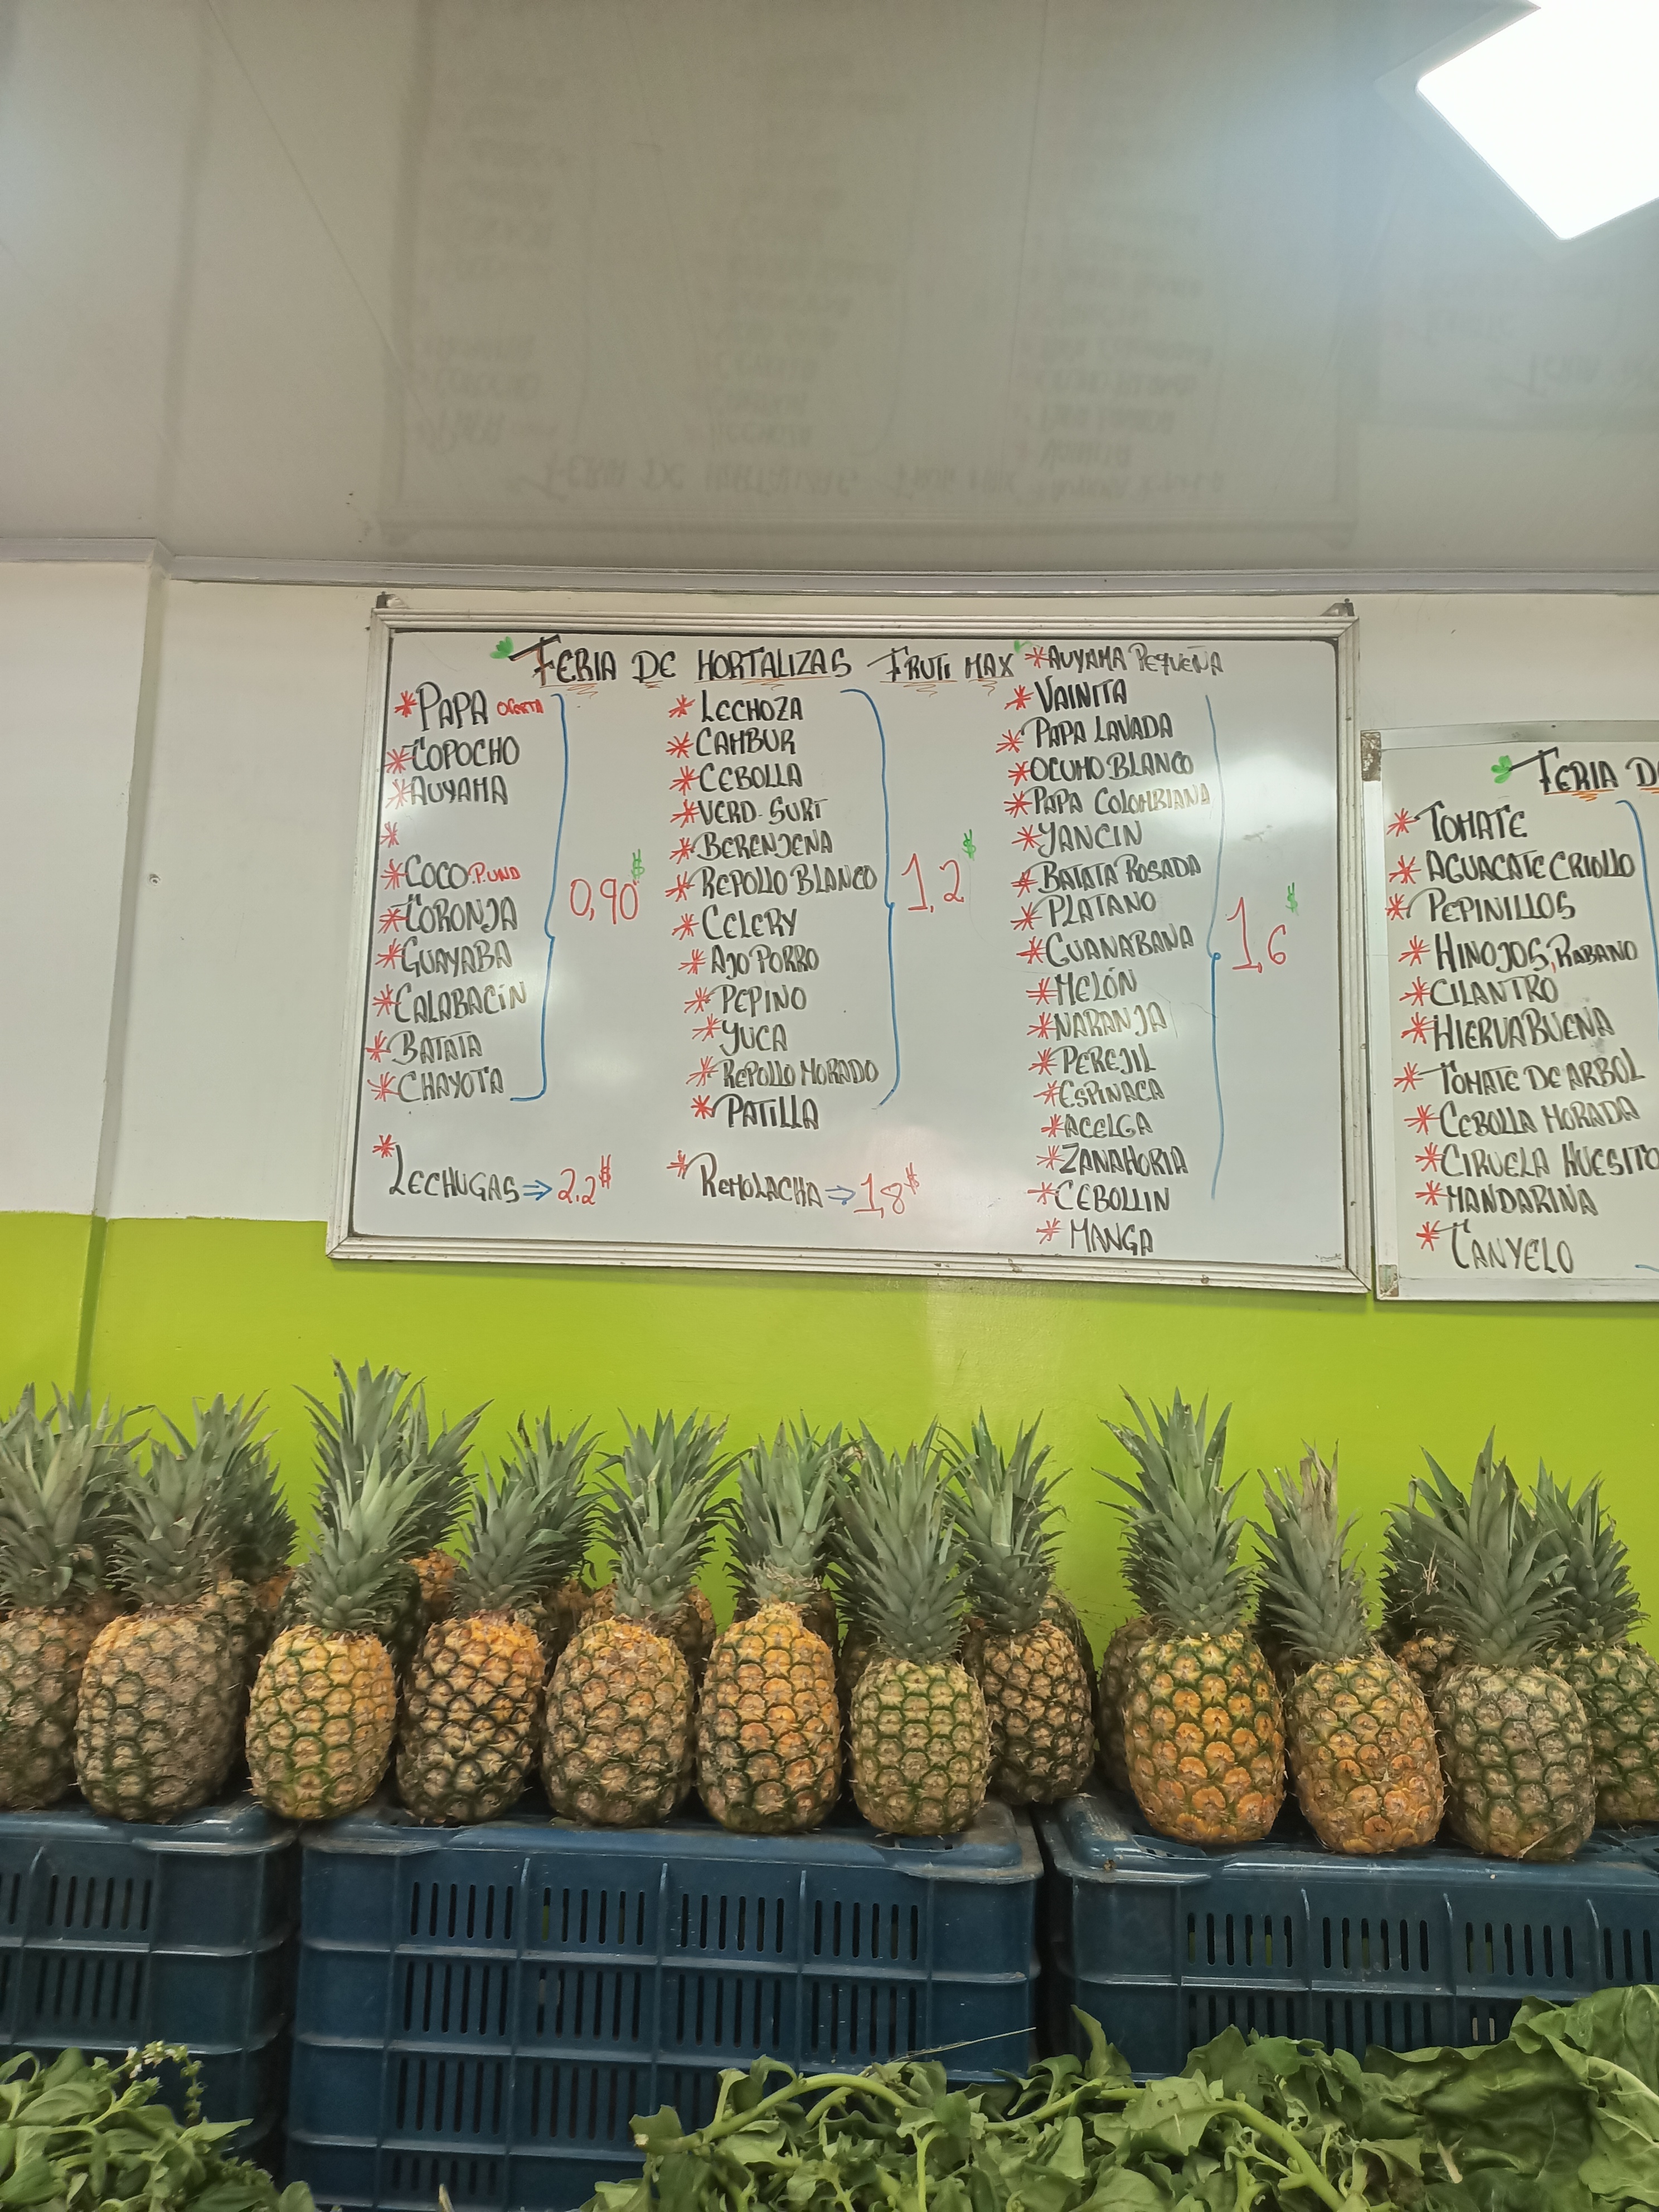 FERIA DE HORTALIZAS FRUTI MAX
*PAPA OFERTA
*COPOCHO
*AUYAMA
*
*COCO P.UND
*TORONJA
*GUAYABA
*CALABACÍN
*BATATA
*CHAYOTA
0,90$
*LECHUGAS⇒2,2$
*LECHOZA
*CAMBUR
*CEBOLLA
*VERD-SURT
*BERENJENA
*REPOLLO BLANCO
*CELERY
*AJO PORRO
*PEPINO
*YUCA
*REPOLLO MORADO
*PATILLA
1,2$
*REMOLACHA⇒1,8$
*AUYAMA PEQUEÑA
*VAINITA
*PAPA LAVADA
*OCUMO BLANCO
*PAPA COLOMBIANA
*YANCIN
*BATATA ROSADA
*PLATANO
*GUANABANA
*MELÓN
*NARANJA
*PEREJIL
*ESPINACA
*ACELGA
*ZANAHORIA
*CEBOLLIN
*MANGA
1,6$
FERIA D
*TOMATE
*AGUACATE CRIOLLO
*PEPINILLOS
*HINOJOS, RABANO
*CILANTRO
*HIERVABUENA
*TOMATE DE ARBOL
*CEBOLLA MORADA
*CIRUELA HUESITO
*MANDARINA
*TANYELO